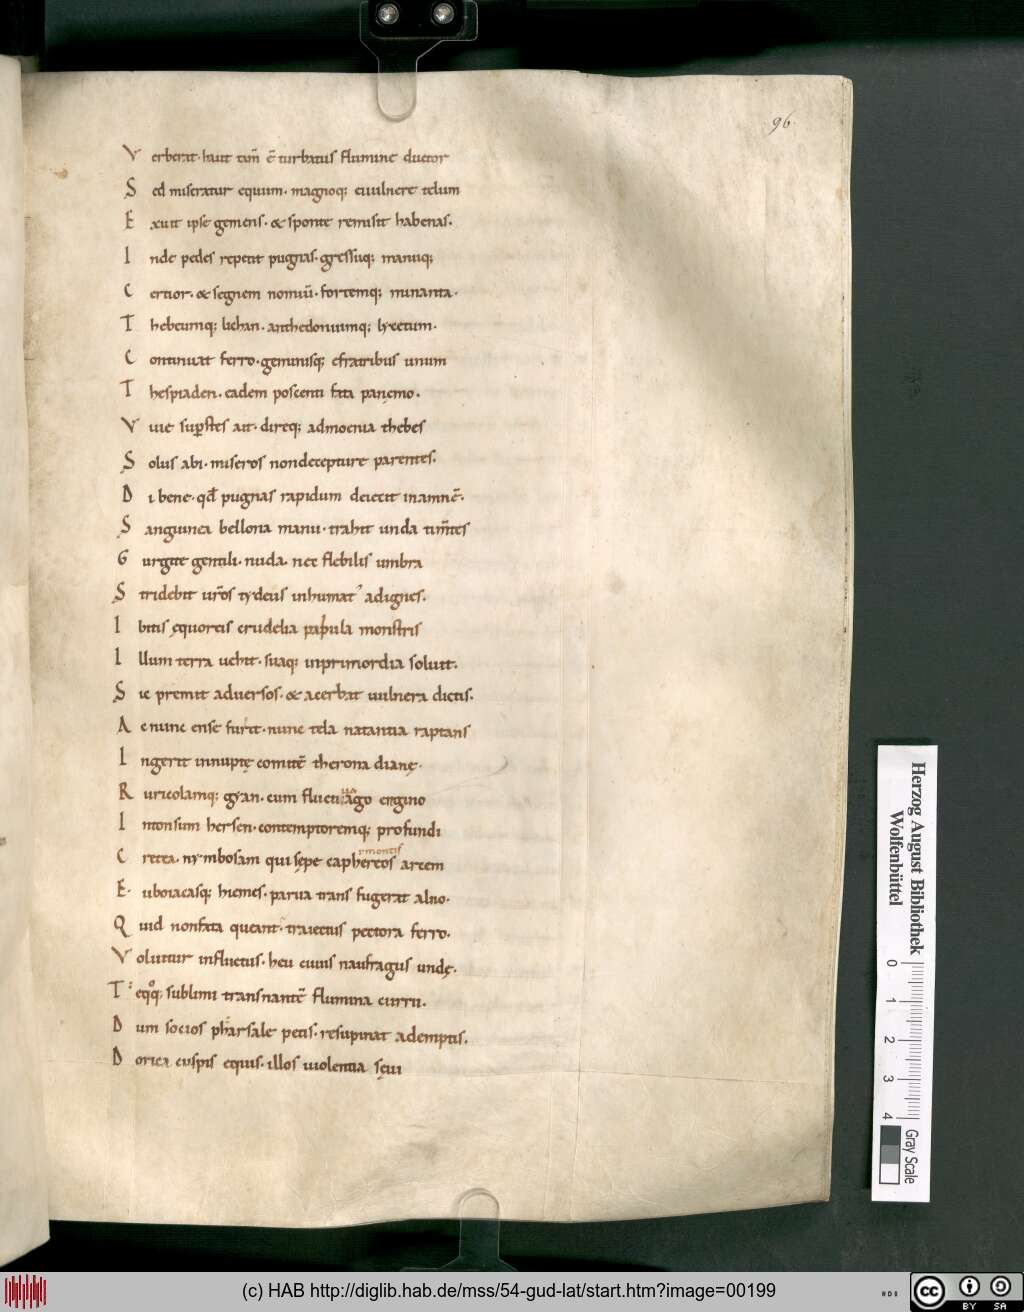 96
V erberat. haut tam̄ ē turbatus flumine ductor
S ed miseratur equum. magnoq; euulnere telum
E xuit ipse gemens. & sponte remisit habenas.
I nde pedes repetit pugnas. gressuq; manuq;
C ertior. & segnem nomiū. fortemq; minanta.
T hebeumq; lichan. anthedoniumq; lycetum.
C ontinuat ferro. geminisq; efratribus unum
T hespiaden. eadem poscenti fata panęmo.
V iue sup̄stes ait. direq; admoenia thebes
S olus abi. miseros nondecepture parentes.
D i bene. qđ pugnas rapidum deiecit inamnē.
S anguinea bellona manu. trahit unda tim̄tes
G urgite gentili. nuda. nec flebilis umbra
S tridebit ur̄os tydeus inhumat' adignes.
I bitis ęquoreis crudelia pabula monstris
I llum terra uehit. suaq; inprimordia soluit.
S ic premit aduersos. & acerbat uulnera dictis.
A c nunc ense furit. nunc tela natantia raptans
I ngerit innuptę comitē therona dianę.
R uricolamq; gyan. cum fluctiuago ergino
I ntonsum hersen. contemptoremq; profundi
C retea. nymbosam qui sępe caphereos arcem
montis
E uboiacasq; hiemes. parua trans fugerat alno.
Q uid nonfata queant. traiectus pectora ferro.
V oluitur influctus. heu cuius naufragus undę.
T eq̊q; sublimi transnantē flumina curru.
D um socios pharsale petis. resupinat ademptis.
D orica cuspis equis. illos uiolentia sęui
Herzog August Bibliothek
Wolfenbüttel
0 1 2 3 4
Gray Scale
(c) HAB http://diglib.hab.de/mss/54-gud-lat/start.htm?image=00199
cc BY SA